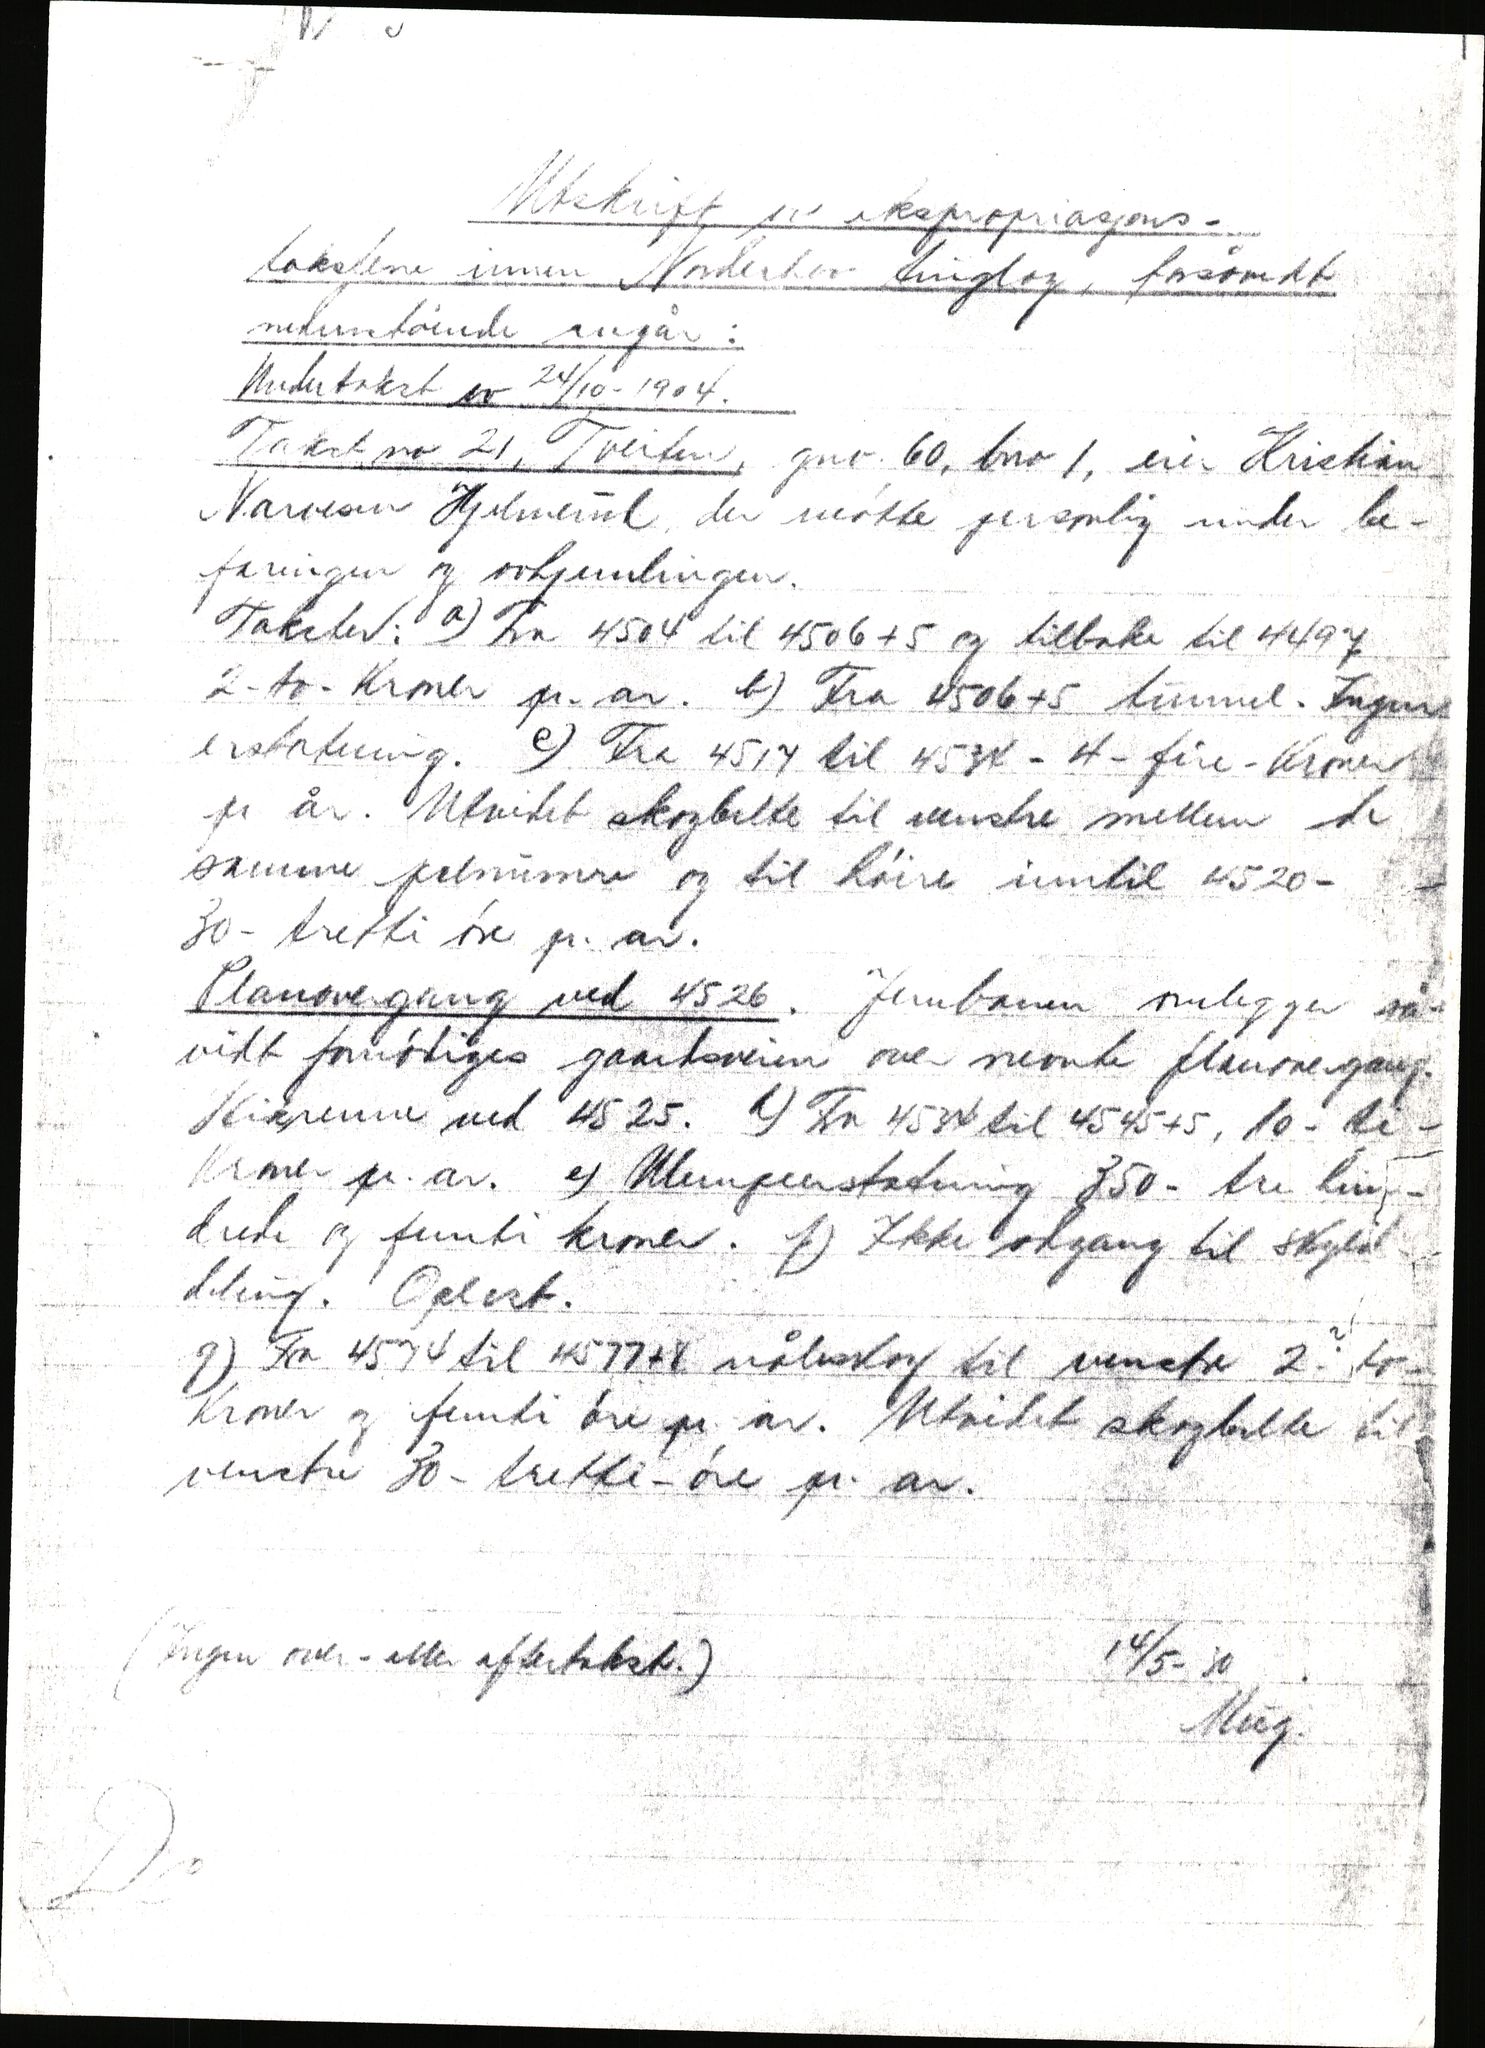 Utskrift av ekspropriasjons-
takstene innen Norderhov tinglag, forsåvidt
nedenstående angår:
Undertakst av 24/10-1904.
Takst no 21, Tveiten, gno. 60, bno 1, eier Kristian
Narvesen Hjelmerud, der møtte personlig under be-
faringen og avhjemlingen.
Takster: a) Fra 4504 til 4506+5 og tilbake til 4497
2-to-Kroner pr. ar. b) Fra 4506+5 tunnel. Ingen
erstatning. c) Fra 4517 til 4534 - 4-fire-Kroner
pr ar. Utvidet skogbelte til venstre mellem de
samme pelnumre og til høire inntil 4520-
30- tretti øre pr. ar.
Planovergang ved 4526. Jernbanen omlegger så-
vidt fornødiges gaardsveien over nevnte planovergang.
Stikrenne ved 4525. d) Fra 4534 til 4545+5, 10- ti-
Kroner pr. ar. e) Ulempeerstatning 350- tre hun-
drede og femti kroner. f) Ikke adgang til skyld-
deling. Oplest.
g) Fra 4574 til 4577+8 nåleskog til venstre 2.?! to-
Kroner og femti øre pr. ar. Utvidet skogbelte til
venstre 30- tretti- øre pr. ar.
(Ingen over- eller eftertakst.) 14/5-30.